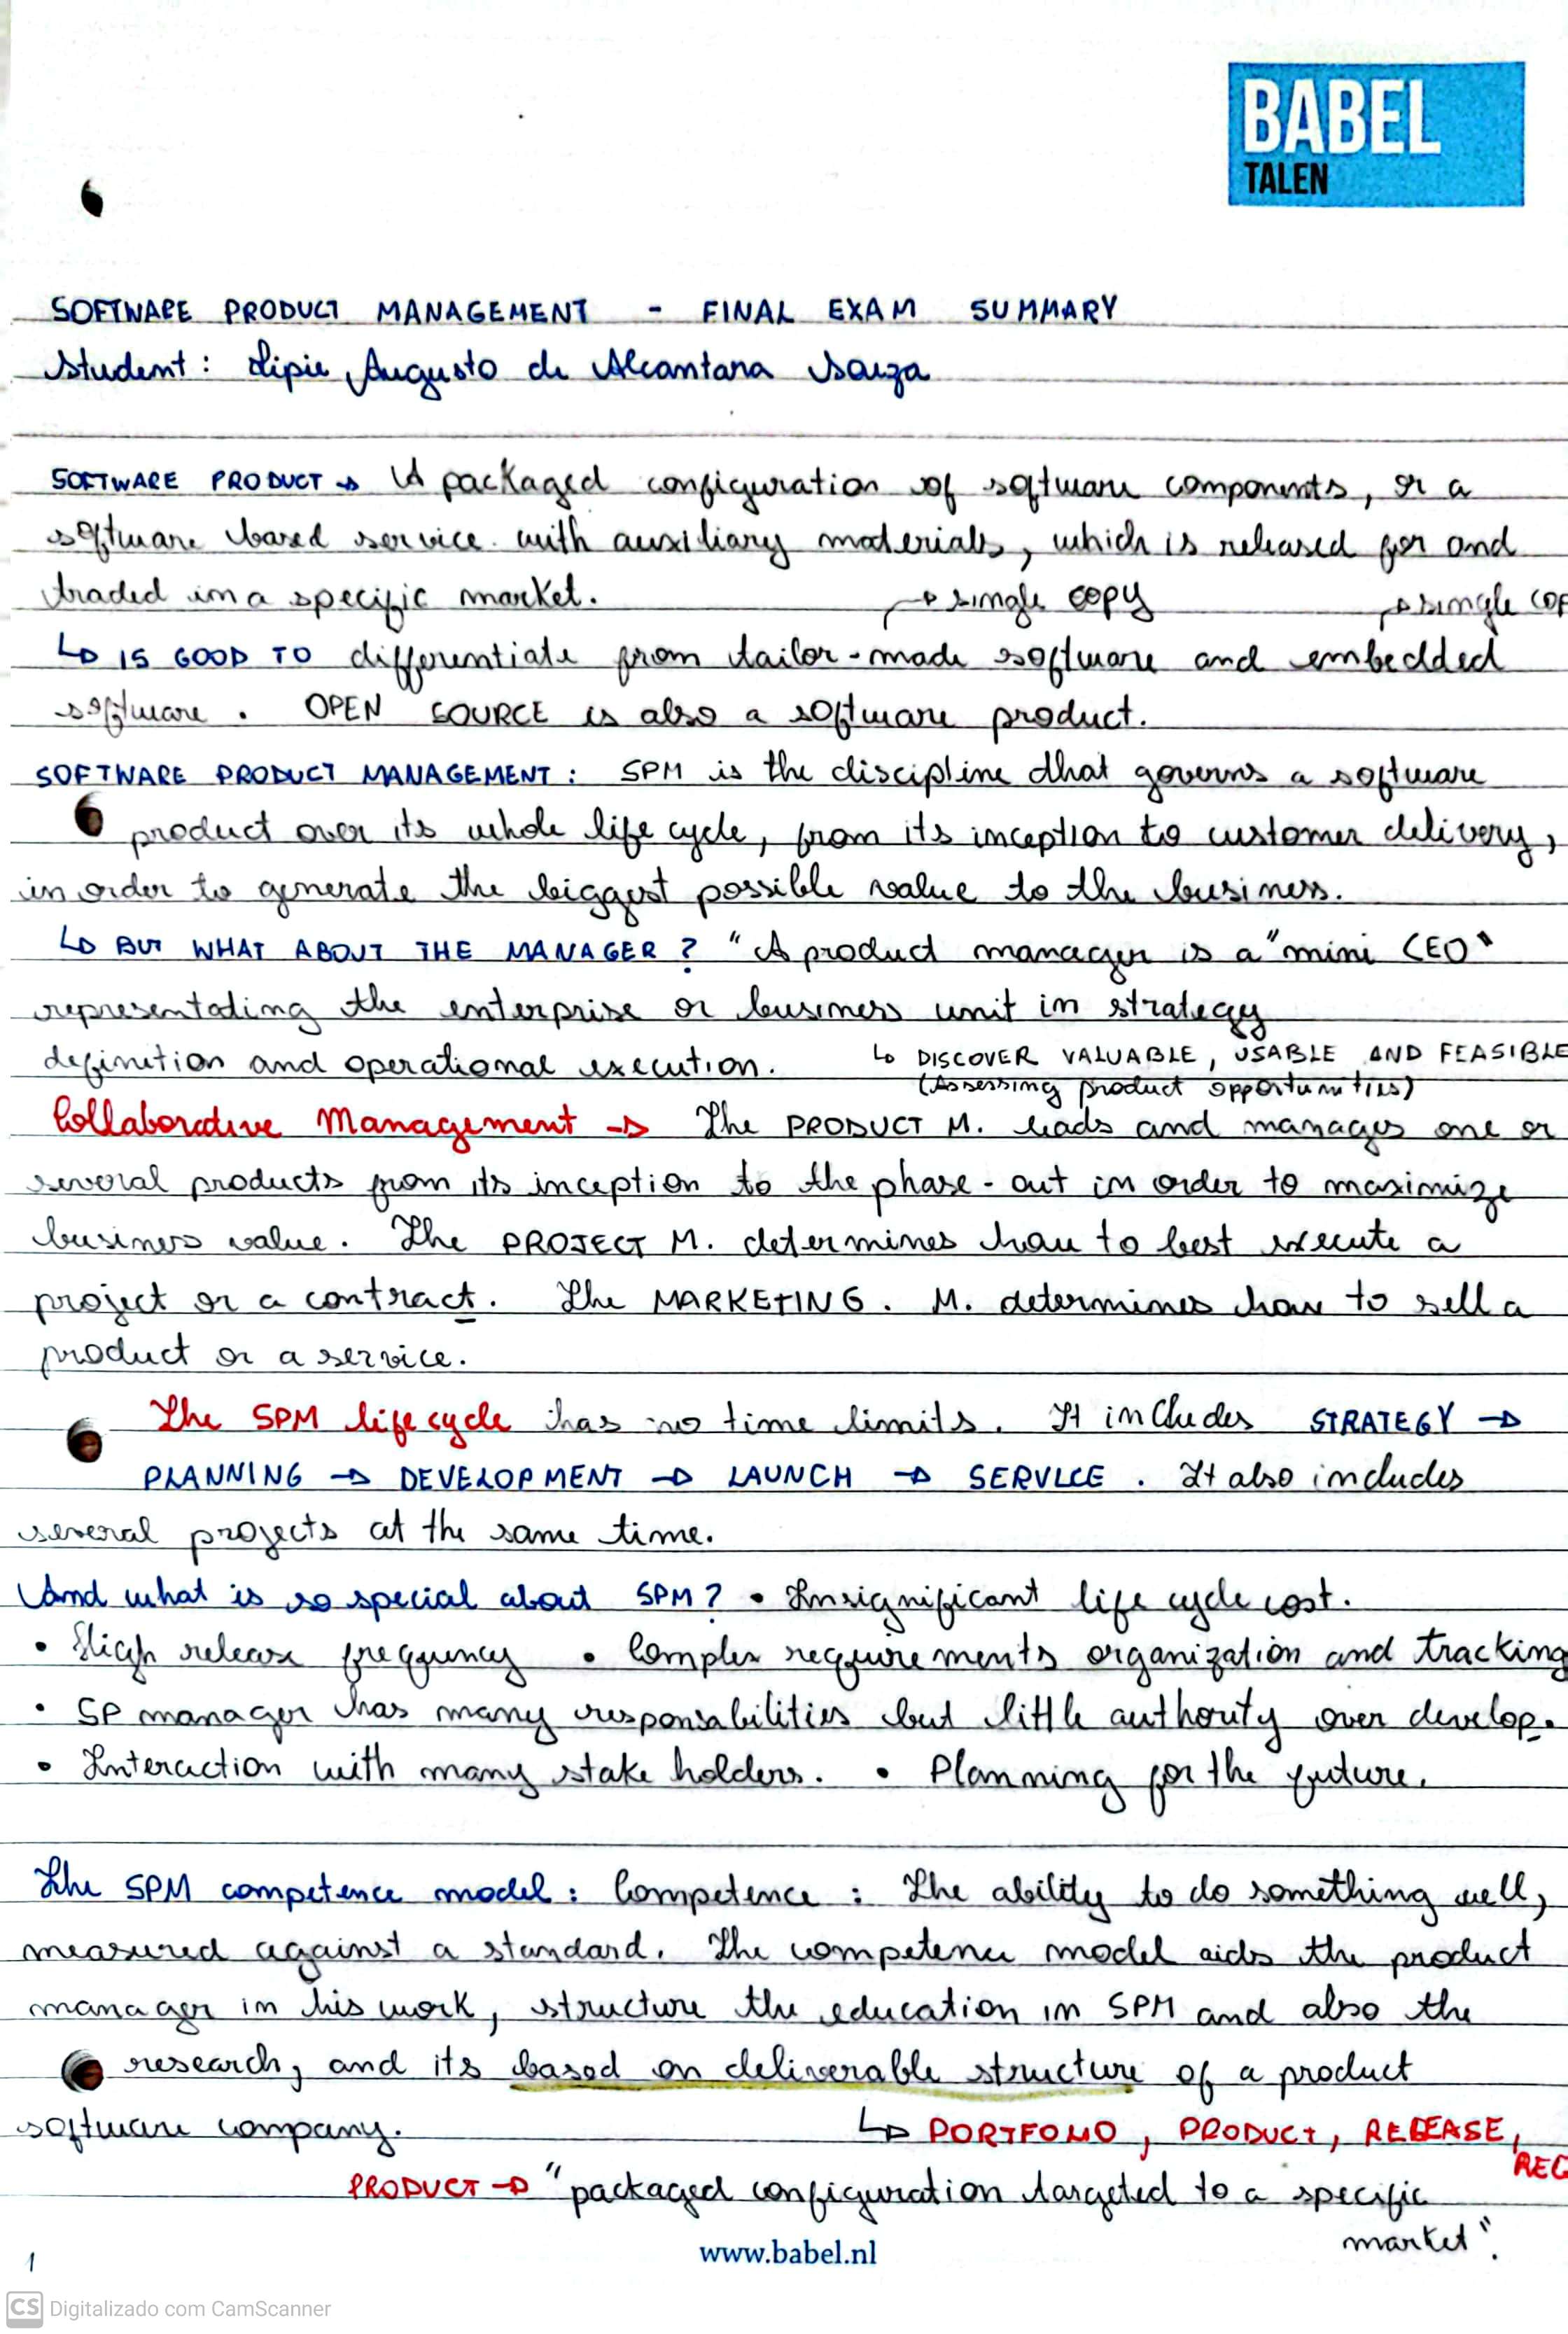 BABEL
TALEN
SOFTWARE PRODUCT MANAGEMENT - FINAL EXAM SUMMARY
Student: Augusto de Alcantara Souza
SOFTWARE PRODUCT → A packaged configuration of software components, or a
software based service with auxiliary materials, which is released for and
traded in a specific market.
→ single copy
→ single cop
↳ IS GOOD TO differentiate from tailor-made software and embedded
software. OPEN SOURCE is also a software product.
SOFTWARE PRODUCT MANAGEMENT: SPM is the discipline that governs a software
product over its whole life cycle, from its inception to customer delivery,
in order to generate the biggest possible value to the business.
↳ BUT WHAT ABOUT THE MANAGER? "A product manager is a "mini CEO"
representating the enterprise or business unit in strategy
definition and operational execution. ↳ DISCOVER VALUABLE, USABLE AND FEASIBLE
(Assessing product opportunities)
Collaborative Management → The PRODUCT M. leads and manages one or
several products from its inception to the phase-out in order to maximize
business value. The PROJECT M. determines how to best execute a
project or a contract. The MARKETING. M. determines how to sell a
product or a service.
The SPM life cycle has no time limits. It includes STRATEGY →
PLANNING → DEVELOPMENT → LAUNCH → SERVICE. It also includes
several projects at the same time.
And what is so special about SPM? • Insignificant life cycle cost.
• High release frequency • Complex requirements organization and tracking
• SP manager has many responsabilities but little authority over develop.
• Interaction with many stake holders. • Planning for the future.
The SPM competence model: Competence: The ability to do something well,
measured against a standard. The competence model aids the product
manager in his work, structure the education in SPM and also the
research, and its based on deliverable structure of a product
software company. ↳ PORTFOLIO, PRODUCT, RELEASE,
REQ
PRODUCT → "packaged configuration targeted to a specific
market".
www.babel.nl
1
CS Digitalizado com CamScanner